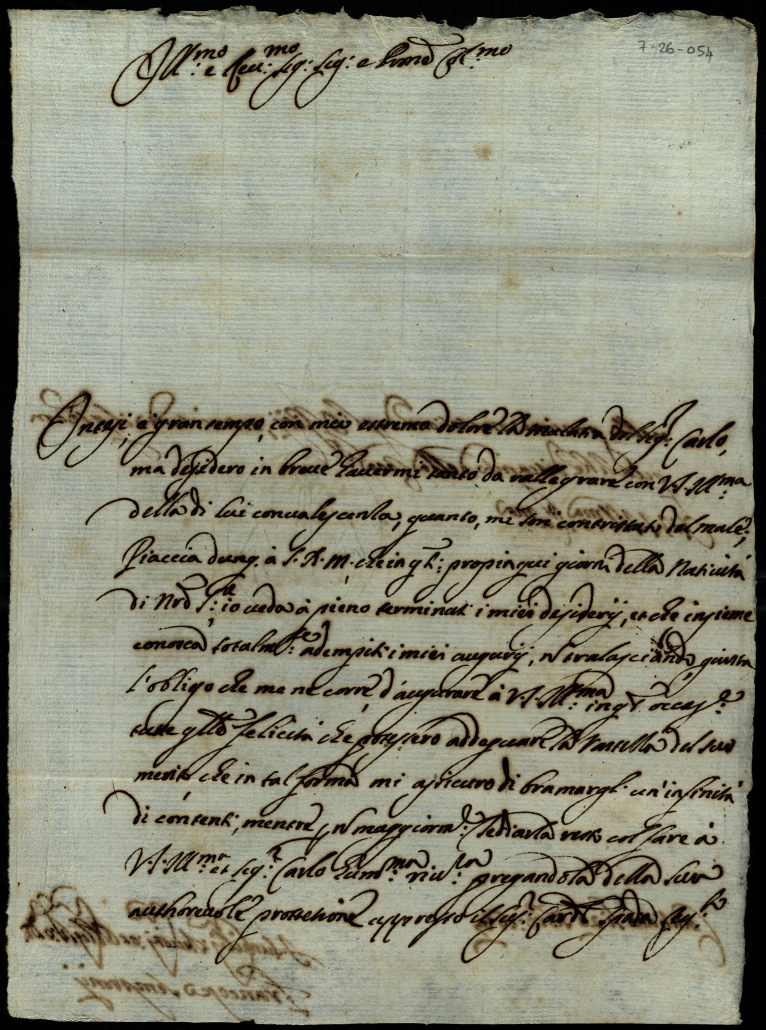 7-26-054
Ill.mo e Rev.mo Sig.r Sig.r e Prone Col.mo
Intesi, è gran tempo, con mio estremo dolore la malatia del Sig.r Carlo,
mà desidero in breve havermi tanto da rallegrare con V.S.Ill.ma
della di lui convalescenza, quanto, mi son contristato del male;
Piaccia dunq. à S.D.M. che in q.ti propinqui giorni della Natività
di Nro S.re io veda à pieno terminati i miei desiderij, et che insieme
conosca totalm.te adempiti i miei augurij, nō tralasciando, giusta
l'obligo che me ne corre d'augurare à V.S.Ill.ma in q.ta occas.e
tutte q.lle felicità che potessero adequare la del suo
merito, che in tal forma mi assicuro di bramargli un'infinità
di contenti, mentre p nō maggiorm.te tediarla resto col fare à
V.S.Ill.ma et Sig.r Carlo hum.ma riv.za pregandola della sua
authorevole protettione appresso il Sig.r Card.l Spada